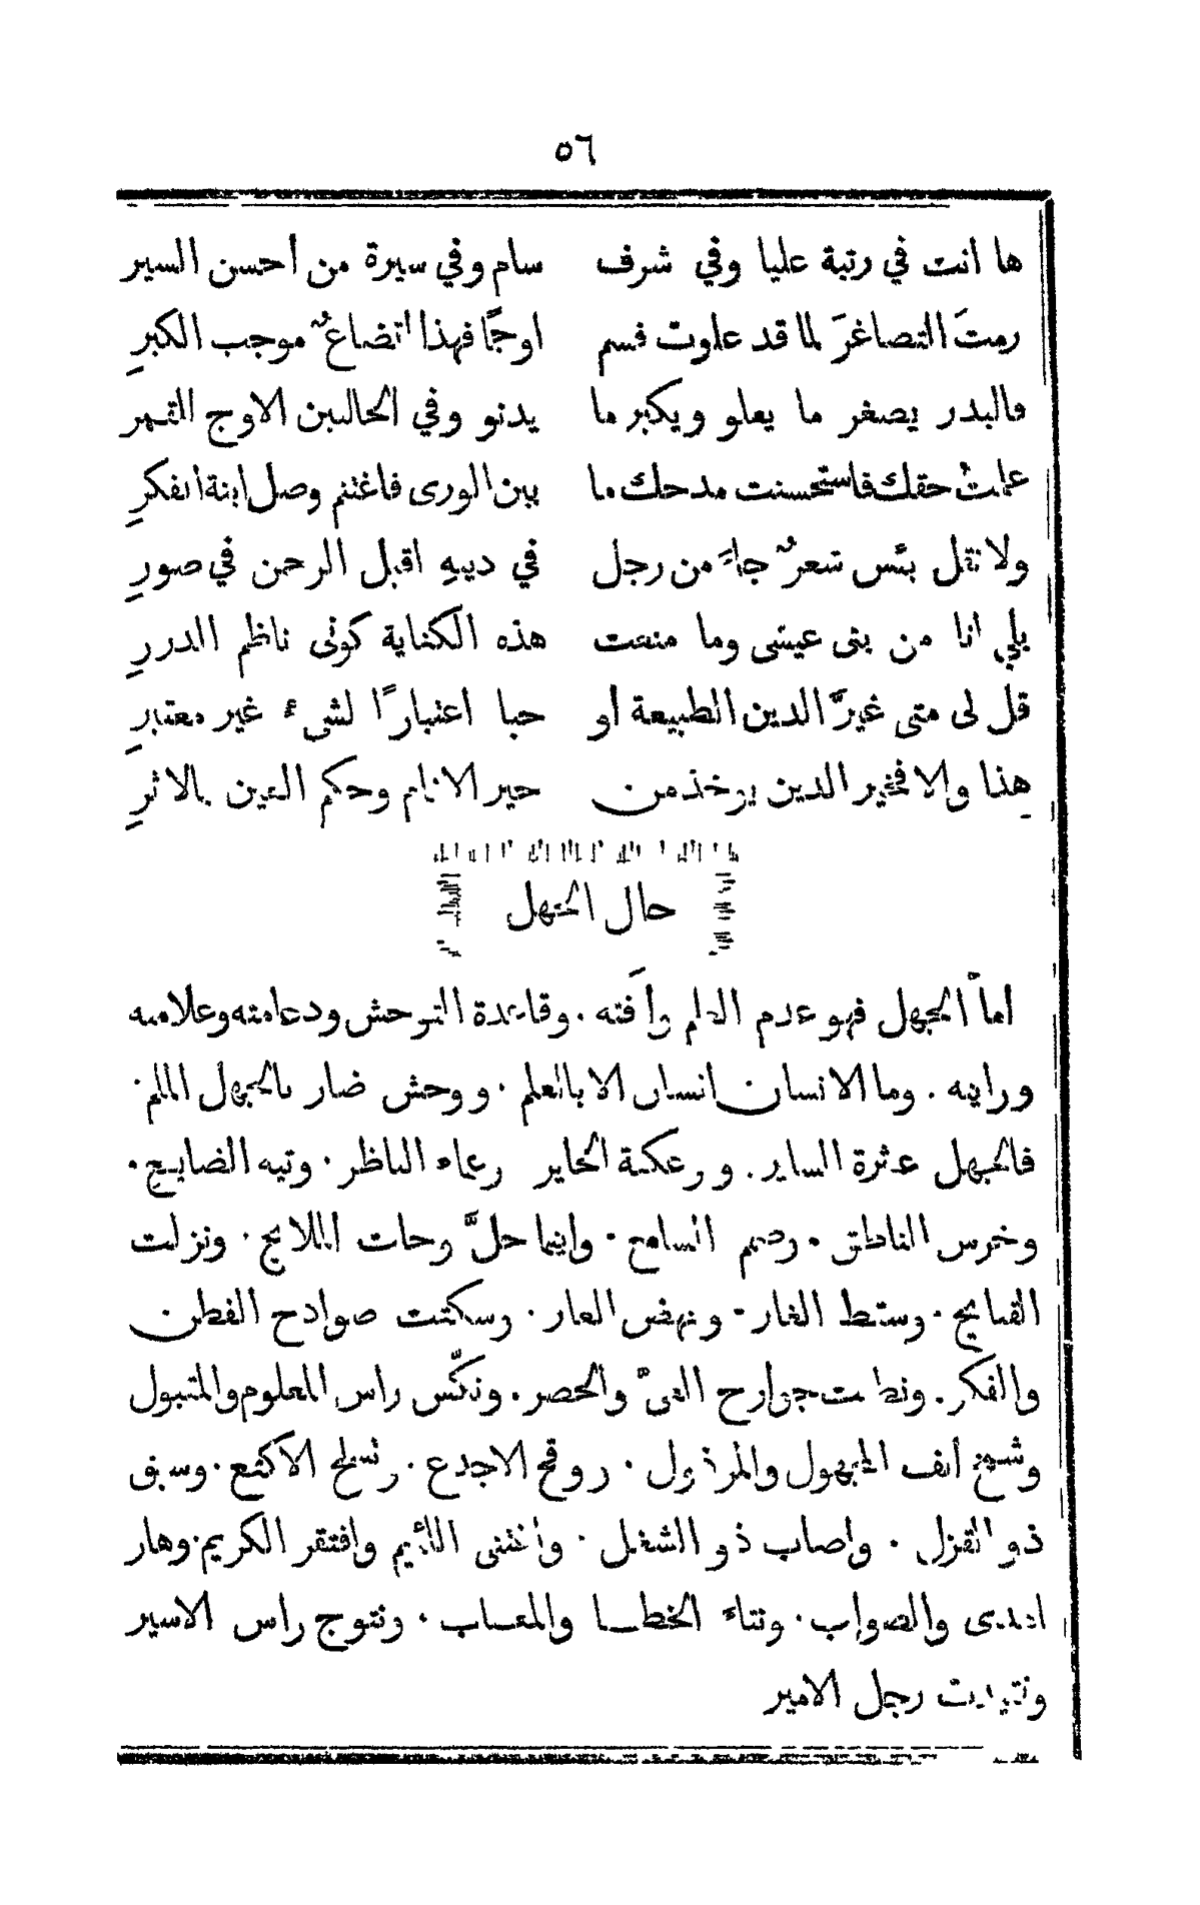 ٥٦
ها انت في رتبة عليا وفي شرف سام وفي سيرة من أحسن السير
رمتَ التصاغرَ لما قد علوت فسم اوجًا فهذا اتضاعٌ موجب الكبرِ
فالبدر يصغر ما يعلو ويكبر ما يدنو وفي الحالين الاوج القمر
علمتُ حقك فاستحسنت مدحك ما بين الورى فاغتنم وصل ابنة الفكرِ
ولا تقل بئس شعرٌ جاءَ من رجل في ديبهِ اقبل الرحمن في صورِ
بلي انا من بني عيسى وما منعت هذه الكناية كوني ناظم الدررِ
قل لي متى غيرَّ الدين الطبيعة أو حبا اعتبارًا لشيء غير معتبرِ
هنا والا فخير الدين يوخذ من خير الانام وحكم العين بالاثرِ
حال الجهل
اماّ الجهل فهو عدم العلم وأَفته . وقاعدة التوحش ودعامته وعلامته
ورايته . وما الانسان انسان الا بالعلم . ووحش ضار بالجهل الملم .
فالجهل عثرة الساير . و وعكة الخاير وعماء الناظر . وتيه الضايع .
وخرس الناطق . وصمم السامع . واينما حلَّ رحات الملايح . ونزلت
القبايح . وسقط الغار . ونهض العار . وسكتت صوادح الفطن
والفكر . ونطقت جوارح العيّ والحصر . ونكّس راس المعلوم والمقبول
وشمخ أنف المجهول والمرذول . روقح الاجدع . وتسلح الاكتع . وسبق
ذو القزل . واصاب ذو الشغل . واغتنى اللئيم وافتقر الكريم . وهار
الهدى والصواب . ونتاءَ الخطا والمعاب . ونتوج راس الاسير
وتقيدت رجل الامير